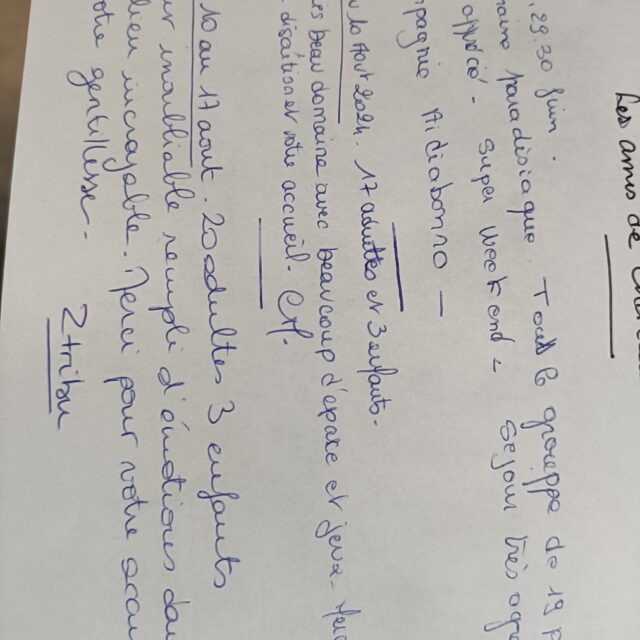 Les amis de
29 30 juin.
domaine paradisiaque. Tout le groupe de 19 p
apprécié - Super Week end = Séjour très agr
Compagnie Aidiabonno -
au 10 Aout 2024. 17 adultes et 3 enfants.
Très beau domaine avec beaucoup d'espace et jeux. Merci
discrétion et votre accueil. CM.
10 au 17 aout. 20 adultes 3 enfants
inoubliable rempli d'émotions dans
lieu incroyable. Merci pour votre accu
votre gentillesse.
Ztribu